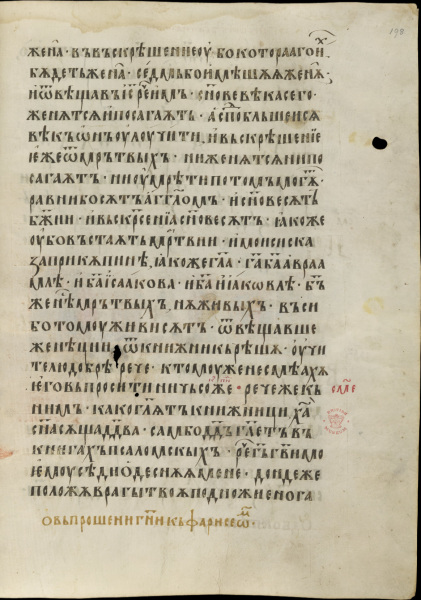 жена · въ въскрѣшениеоу бокотораагоиⷯ
бѫдетьжена · седмьбоимѣшѧѧженѫ ·
иѿвѣщавъис҃речеимъ · сн҃овевѣкасего ·
женѧтсѧипосагаѧтъ · аспⷣоблъшеисѧ
вѣкъонъоулоучити · ивъскрѣшение
ежеѿмрътвыхъ · ниженѧтсѧнипо
сагаѧтъ · ниоумрѣтипотомъмогѫⷮ ·
равнибосѧтъагг҃ломъ · исн҃овесѧтъ
бж҃ии · ивъскрⷭ҇ениасн҃овесѧтъ · ꙗкоже
оубовъстаѧтъмрⷮ҇твии · имоисиска
заприкѫпинѣ, ꙗкожегл҃а · га҃ба҃авраа
млѣ · иба҃исаакова · иба҃иꙗковлѣ · бъ҃
женѣⷭ҇мрътвыхъ, нѫживыхъ · въси
ботомоуживисѧтъ · ѿвѣщавше
женѣции ѿкнижникърѣшѧ · оучи
телюдобрѣрече · ктомоуженесмѣахѫ
еговъпроситиничьсоже · речежекъ
нимъ · какогл҃ѧтъкнижници, ха҃
сн҃асѫщадв҃да · самбодв҃дъгл҃етъвъ
книгахъпсаломскыхъ · речег҃ьг҃вимо
емоусѣдиодеснѫѧмене · дондеже
положѫврагытвоѧподножиенога
овъпрошениг҃никъфарисеѡⷨ ·